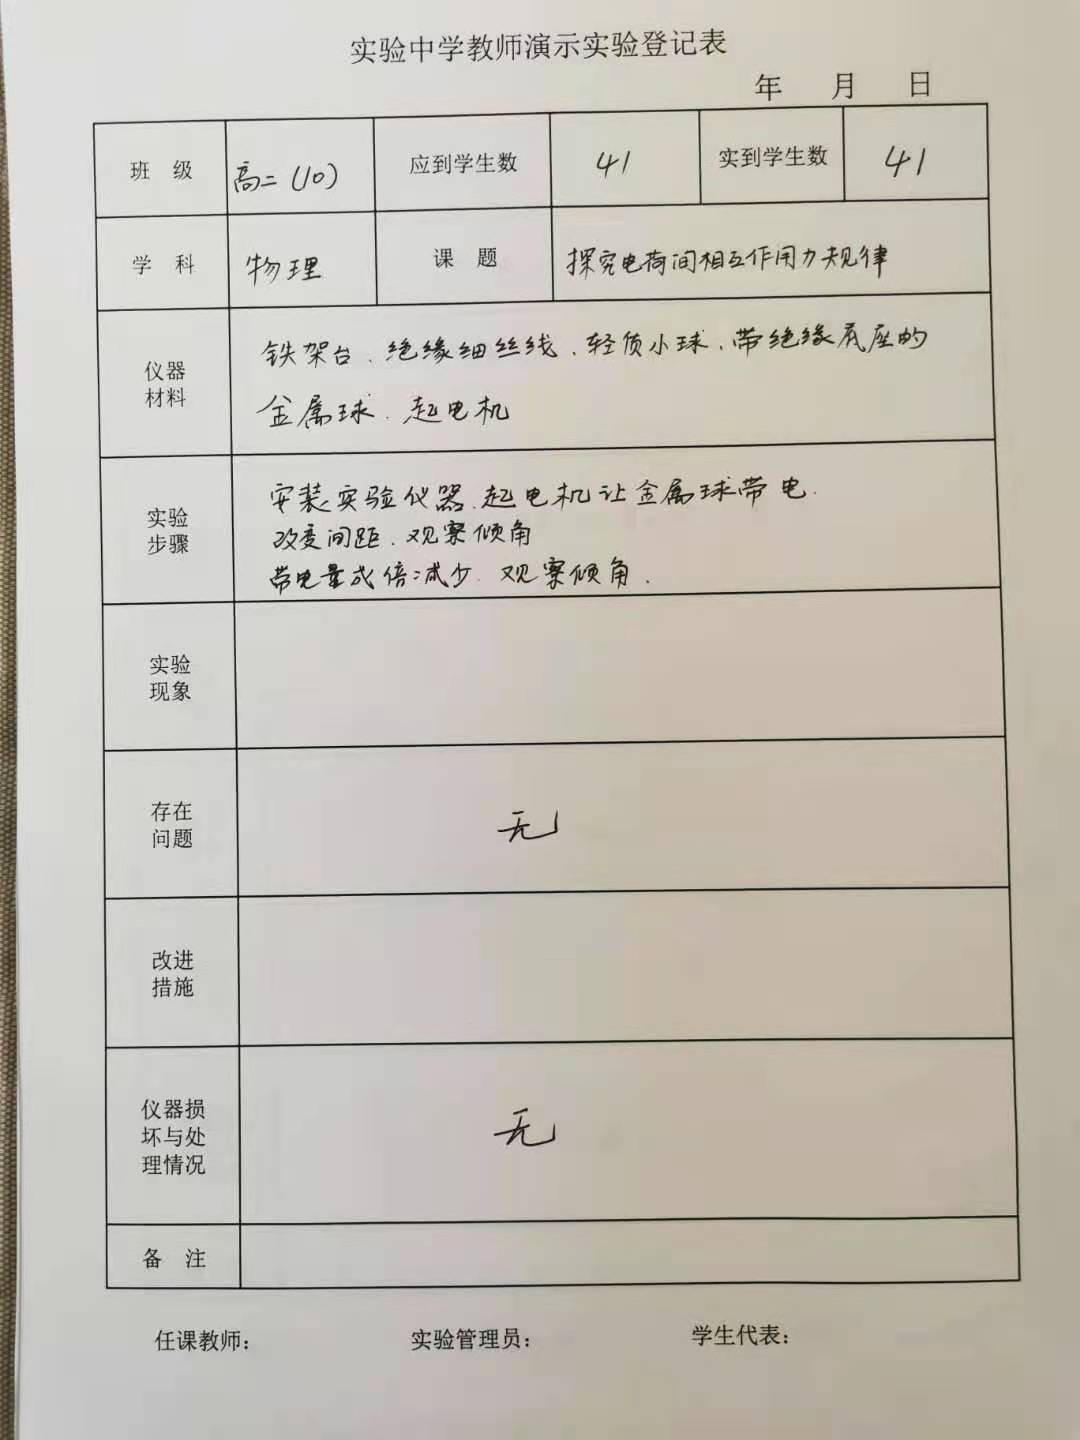 实验中学教师演示实验登记表
年 月 日
班 级 高二(10) 应到学生数 41 实到学生数 41
学 科 物理 课 题 探究电荷间相互作用力规律
仪器
材料
铁架台、绝缘细丝线、轻质小球、带绝缘底座的
金属球、起电机
实验
步骤
安装实验仪器,起电机让金属球带电.
改变间距、观察倾角
带电量成倍减少.观察倾角.
实验
现象
存在
问题
无
改进
措施
仪器损
坏与处
理情况
无
备 注
任课教师: 实验管理员: 学生代表: